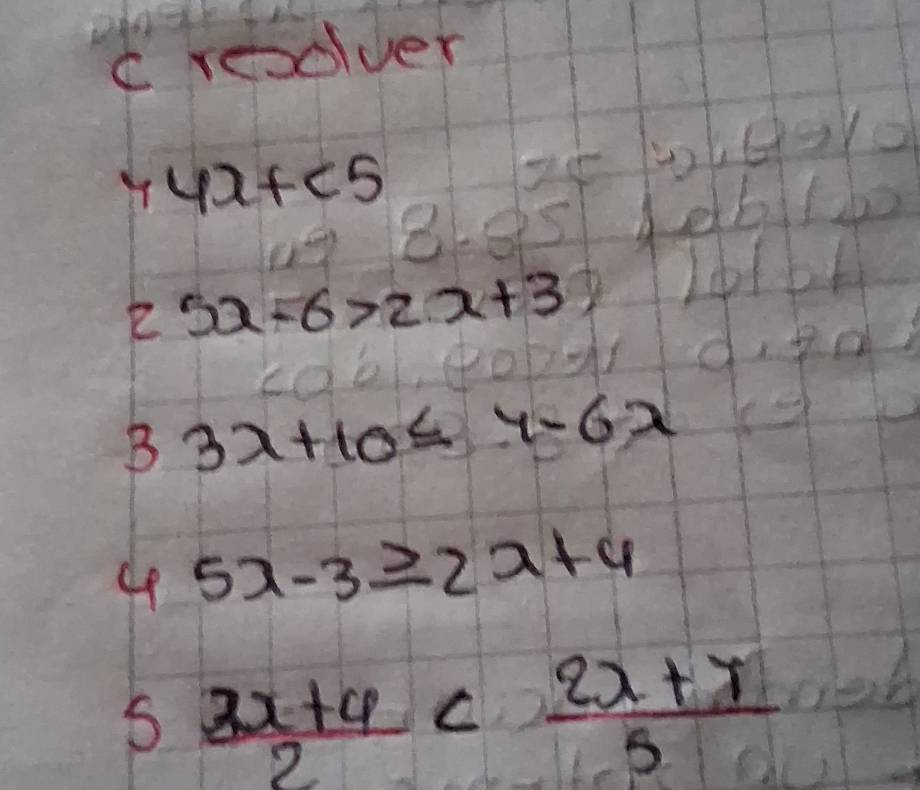 C resolver
1 4x+<5
2 5x-6>2x+3
3 3x+10≤ 1-6x
4 5x-3≥2x+4
5 3x+4/2 < 2x+1/5